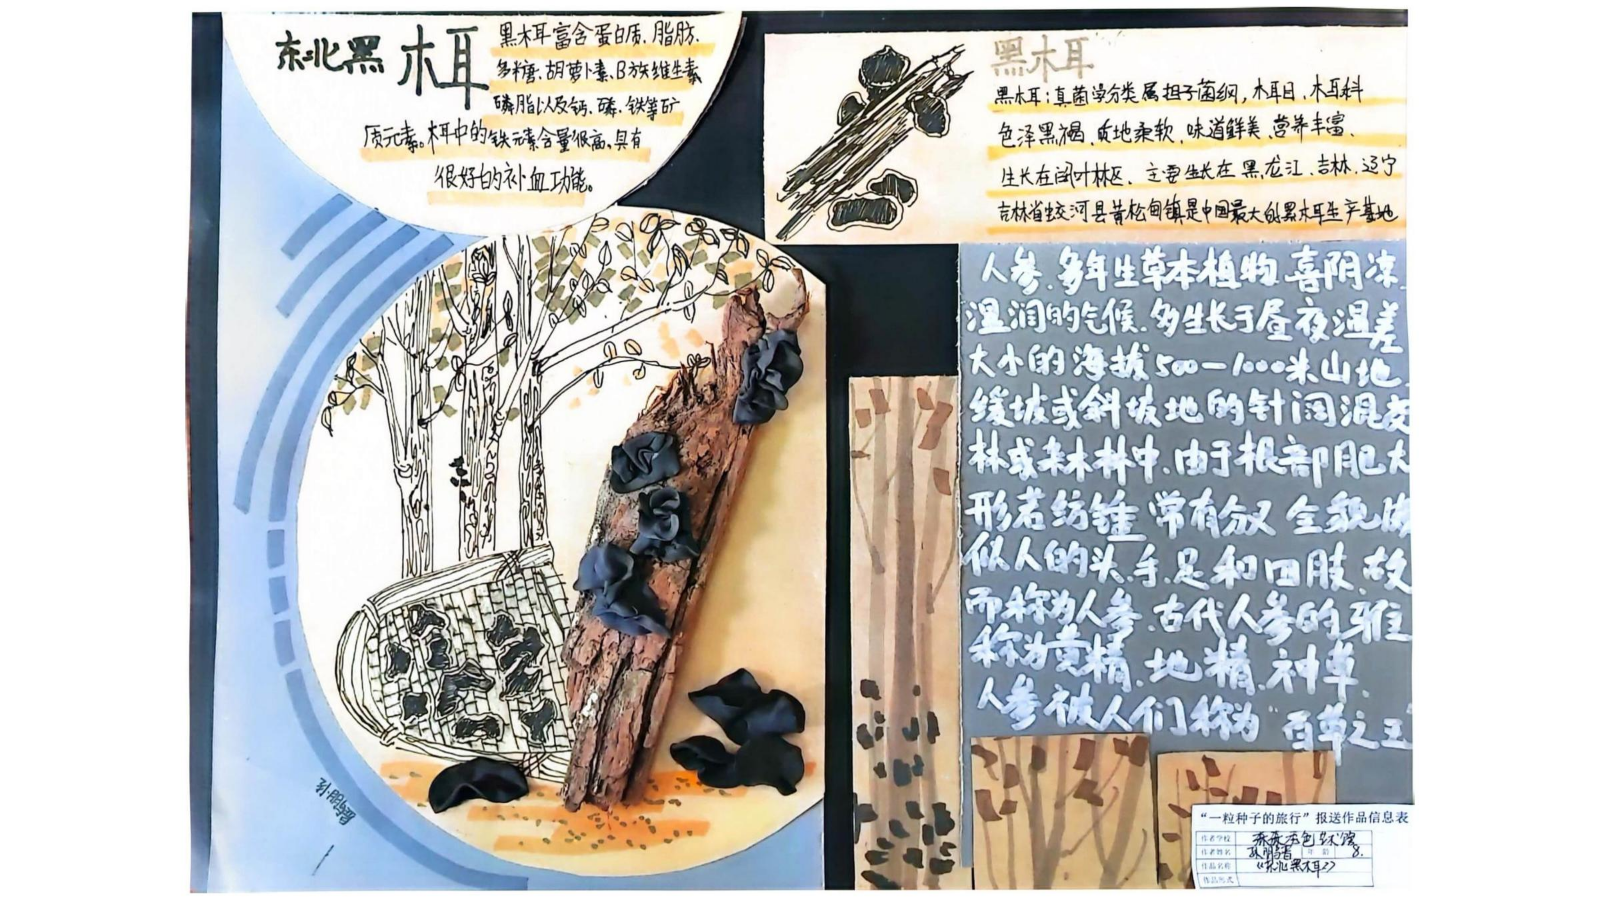 东北黑木耳
黑木耳富含蛋白质、脂肪、
多糖、胡萝卜素、B族维生素
磷脂以及钙、磷、铁等矿
质元素。木耳中的铁元素含量很高，具有
很好的补血功能。
黑木耳
黑木耳：真菌学分类属担子菌纲，木耳目、木耳科
色泽黑褐、质地柔软、味道鲜美、营养丰富、
生长在阔叶林区、主要生长在黑龙江、吉林、辽宁
吉林省蛟河县黄松甸镇是中国最大的黑木耳生产基地
人参、多年生草本植物、喜阴凉、
温润的气候、多生长于昼夜温差
大小的海拔500—1000米山地、
缓坡或斜坡地的针阔混交
林或杂木林中、由于根部肥大
形若纺锤 常有分叉 全貌
似人的头、手、足和四肢、故
而称为人参、古代人参的雅
称为黄精、地精、神草、
人参被人们称为“百草之王
“一粒种子的旅行”报送作品信息表
作者学校
作者姓名 年龄 8.
作品名称 《东北黑木耳》
作品形式